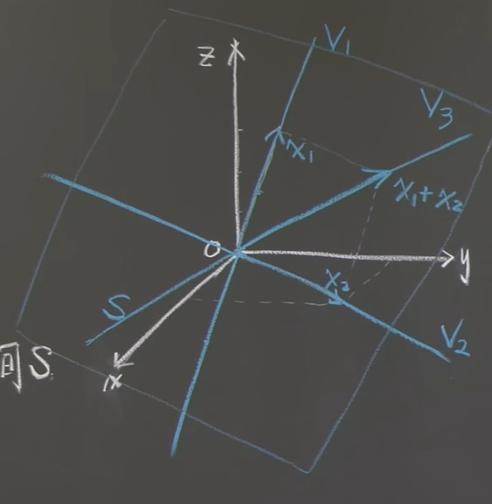 V₁
z
V₃
x₁
x₁+x₂
O
y
x₂
S
V₂
S.
x